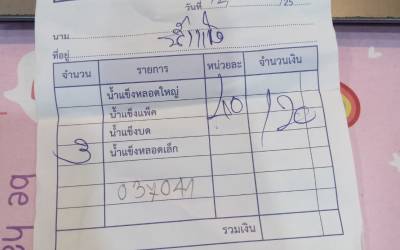 วันที่ /25
นาม
ที่อยู่
จำนวน รายการ หน่วยละ จำนวนเงิน
น้ำแข็งหลอดใหญ่
น้ำแข็งแพ็ค 40 120
น้ำแข็งบด
3 น้ำแข็งหลอดเล็ก
037041
รวมเงิน
be ha